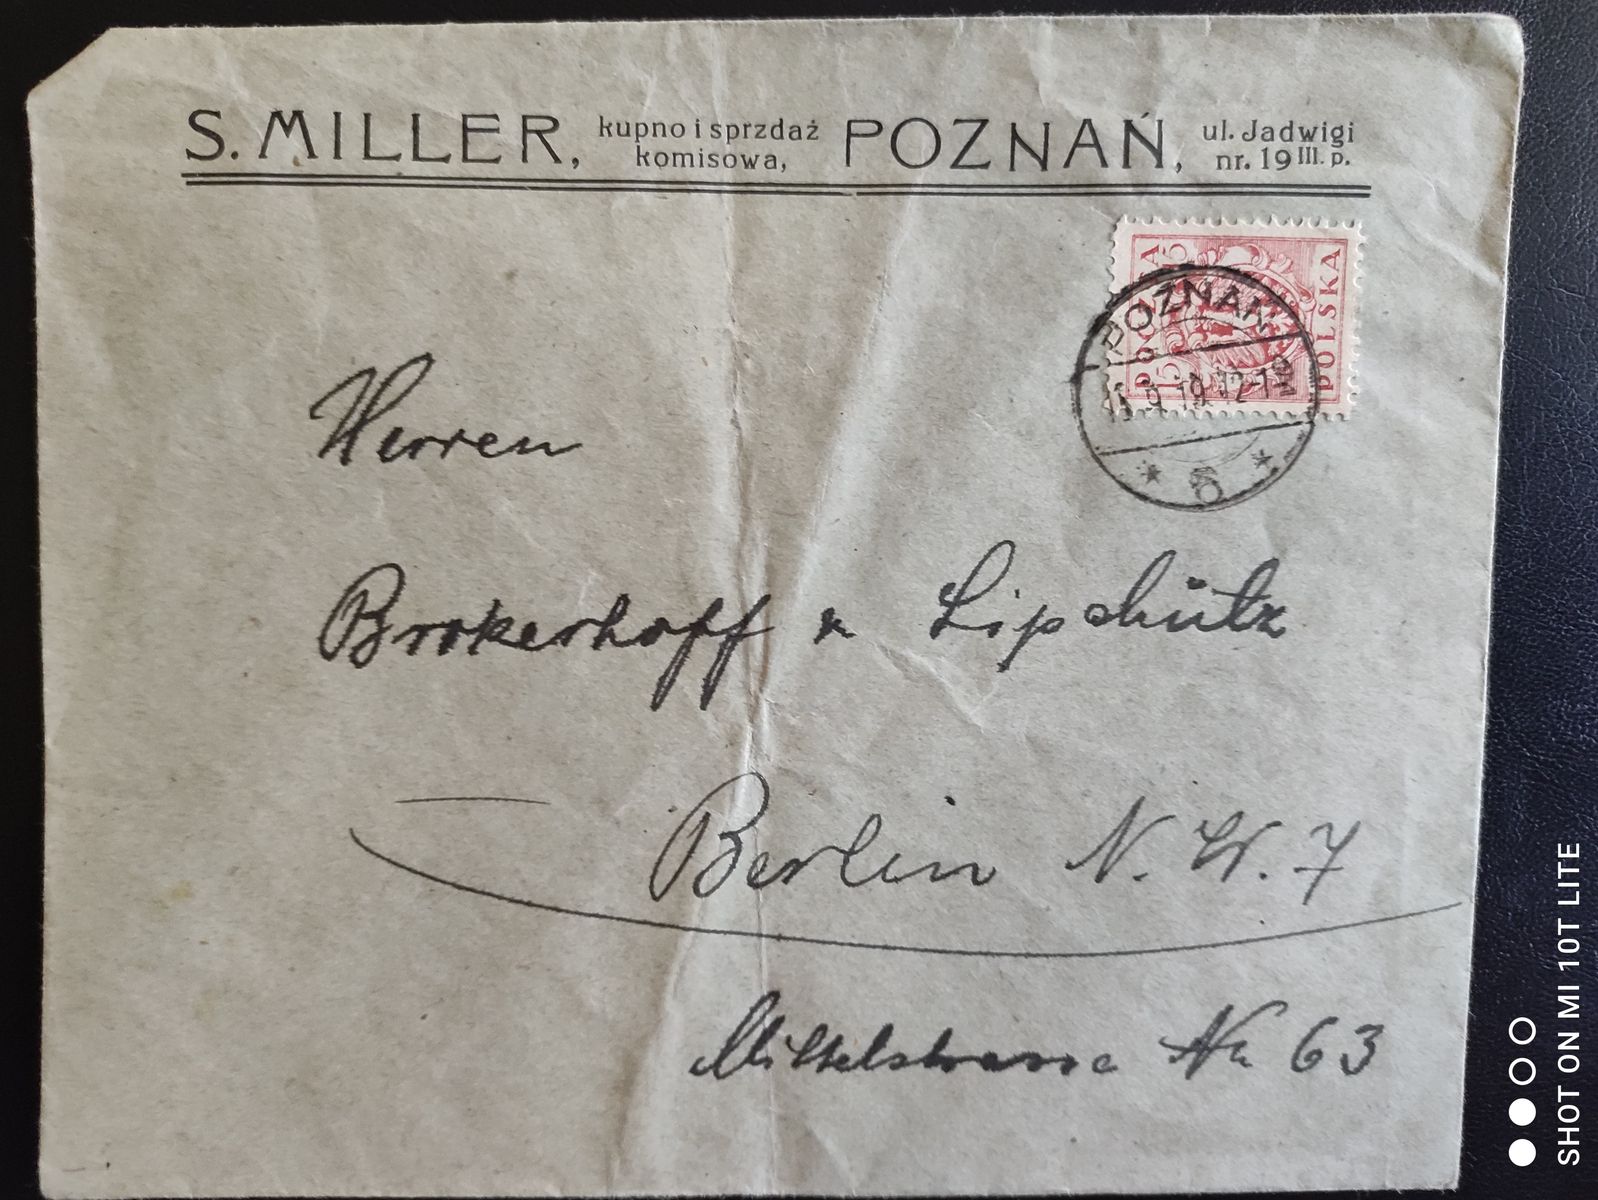 S. MILLER, kupno i sprzdaż komisowa, POZNAŃ, ul. Jadwigi nr. 19 III. p.
POCZTA POLSKA
15 15
POZNAŃ
9. 19. 12-1
* 6 *
Herren
Brokerhoff & Lipschütz
Berlin N. W. 7
Mittelstrasse No 63
SHOT ON MI 10T LITE